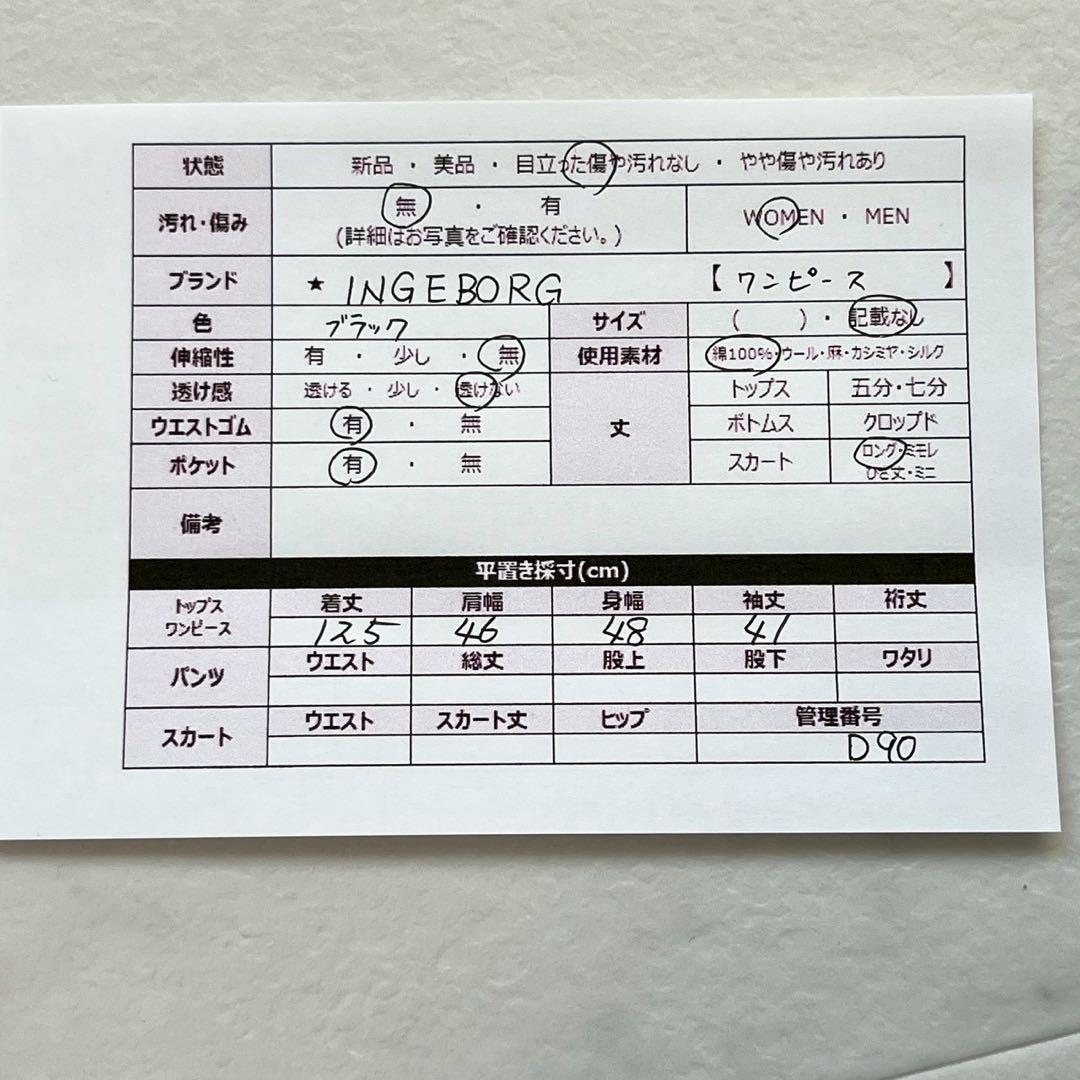 状態 新品 ・ 美品 ・ 目立った傷や汚れなし ・ やや傷や汚れあり
汚れ・傷み 無 ・ 有 WOMEN ・ MEN
(詳細はお写真をご確認ください。)
ブランド ★ INGEBORG 【 ワンピース 】
色 ブラック サイズ ( ) ・ 記載なし
伸縮性 有 ・ 少し ・ 無 使用素材 綿100%・ウール・麻・カシミヤ・シルク
透け感 透ける ・ 少し ・ 透けない 丈 トップス 五分・七分
ウエストゴム 有 ・ 無 ボトムス クロップド
ポケット 有 ・ 無 スカート ロング・ミモレ
ひざ丈・ミニ
備考
平置き採寸(cm)
トップス ワンピース 着丈 肩幅 身幅 袖丈 裄丈
125 46 48 41
パンツ ウエスト 総丈 股上 股下 ワタリ
スカート ウエスト スカート丈 ヒップ 管理番号
D90